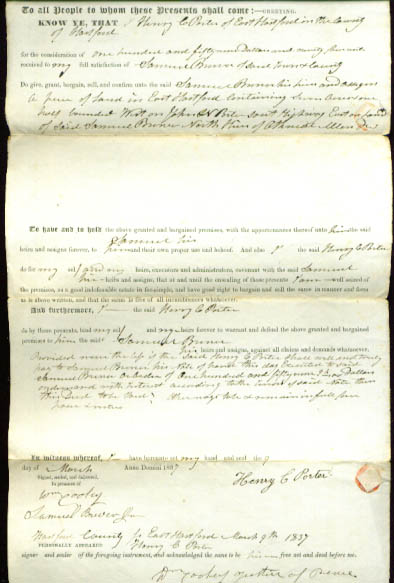 To all People to whom these Presents shall come:—GREETING.
KNOW YE, THAT I Henry C Porter of East Hartford in the County
of Hartford
for the consideration of one hundred and fifty nine Dollars and
received to my full satisfaction of Samuel Brewer of said Town & County
Do give, grant, bargain, sell, and confirm unto the said Samuel Brewer his heirs and assigns
A piece of Land in East Hartford containing
bounded West on John Highway East on Land
of said Samuel Brewer North
To have and to hold the above granted and bargained premises, with the appurtenances thereof unto him the said
Samuel his
heirs and assigns forever, to and their own proper use and behoof. And also I the said Henry C Porter
do for my self and my heirs, executors and administrators, covenant with the said Samuel
his heirs and assigns, that at and until the ensealing of these presents I am well seized of the
premises, as a good indefeasible estate in fee-simple, and have good right to bargain and sell the same in manner and form
as is above written, and that the same is free of all incumbrances whatsoever.
And furthermore, I the said Henry C Porter
do by these presents, bind my self and my heirs forever to warrant and defend the above granted and bargained
premises to him the said Samuel Brewer
his heirs and assigns, against all claims and demands whatsoever.
Provided never the less if the said Henry C Porter shall well and truly
pay to Samuel Brewer his Note of hand this day executed to said
Samuel Brewer or order of One hundred and fifty nine Dollars
on demand with interest according to the of said Note then
this Deed to be void otherwise to be & remain in full force
In witness whereof, I have hereunto set my hand and seal the 9
day of March Anno Domini 1837
Signed, sealed, and delivered,
In presence of
Henry C Porter
Wm Cooley
Samuel Brewer Jr
Hartford County East Hartford March 9th 1837
PERSONALLY APPEARED Henry C Porter
signer and sealer of the foregoing instrument, and acknowledged the same to be his free act and deed before me.
Wm Cooley Justice of Peace